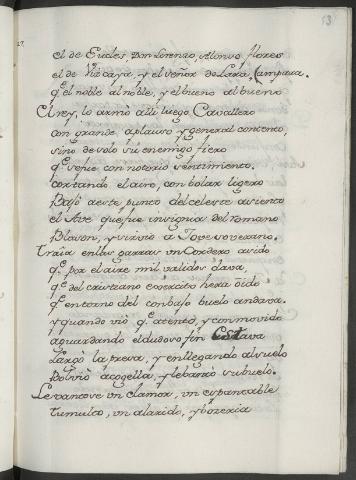 53
el de Eudes, Don Lorenzo, Alonso flores
el de Viscaya, y el señor de Lara, (ampara.
q.e el noble al noble, y el bueno al bueno
El rey, lo armó alli luego Cavallero
con grande aplauso y general contento,
sino de solo su enemigo fiero
q.e se fue con notorio sentimiento.
cortando el aire, con bolar ligero
Bajó a este punto del celeste asiento
el Ave que fue insignia del romano
Blason, y sirvió a Jove soverano.
Traia en las garras un Cordero asido
q.e por el aire mil validos dava,
q.e del cristiano exercito hera oido
q.e entorno del con bajo buelo andava.
y quando vió q.e atento, y conmovido
aguardando el dudoso fin estava
Largó la presa, y en llegando al suelo
Bolvió a cogella, y lebantó su buelo.
Levantose un clamor, un espantable
tumulto, un alarido, y bozeria